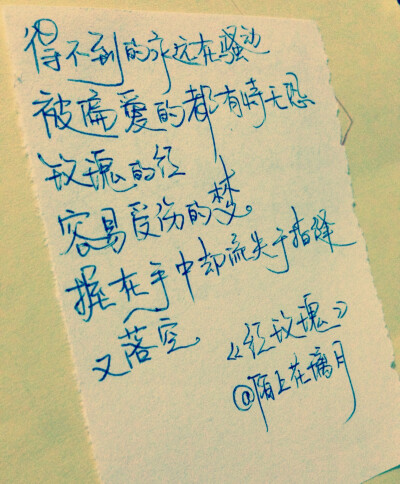 得不到的永远在骚动
被偏爱的都有恃无恐
玫瑰的红
容易受伤的梦。
握在手中却流失于指缝
又落空
《红玫瑰》
@陌上花漓月